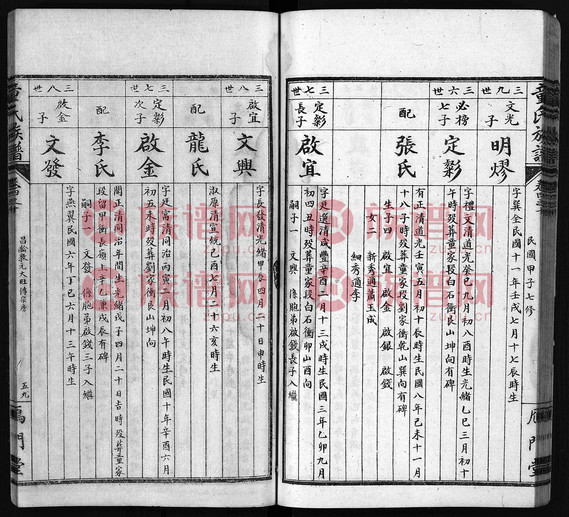 民國甲子七修
雁門堂
三九世
文光
子
明熮
字巽全民國十一年壬戌七月十七辰時生
三六世
必榜
七子
定彩
字禮文清道光癸巳九月初八酉時生光緒己巳三月初十
午時歿葬董家段白石衝艮山坤向有碑
配
張氏
有正清道光壬寅五月初十辰時生民國八年己未十一月
十八子時歿葬董家段劉家衝乾山巽向有碑
生子四 啟宜 啟金 啟銀 啟錢
女二 新秀適蕭玉成
細秀適李
三七世
定彩
長子
啟宜
字是遜清咸豐辛酉二月十三戌時生民國三年乙卯九月
初四丑時歿葬董家段白石衝卯山酉向
嗣子一 文興 係胞弟啟錢長子入繼
三八世
啟宜
子
文興
字長發清光緒甲午四月二十日申時生
配
龍氏
淑原清宣統己酉七月二十六亥時生
三七世
定彩
次子
啟金
字足富清同治丙寅二月初八午時生民國十年辛酉六月
初五未時歿葬劉家衝艮山坤向
配
李氏
閏正清同治年間生光緒戊子四月二十日吉時歿葬董家
段留甲衝長嶺上辛乙兼戌辰有碑
嗣子一 文發 係胞弟啟錢三子入繼
三八世
啟金
子
文發
字燕翼民國六年丁巳六月十三午時生
昌綸敦元大旺傳宗房
五九
雁門堂